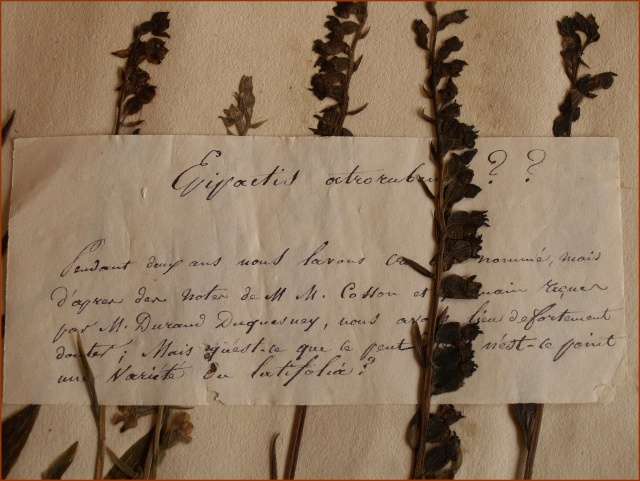 Epipactis atroruben ? ?
Pendant deux ans nous l'avons nommé, mais
d'apres des notes de M M. Cosson et main reçues
par M. Durand Duquesney, nous avo lieu de fortement
douter ; Mais qu'est-ce que ce peut n'est-ce point
une Variété du latifolia ?